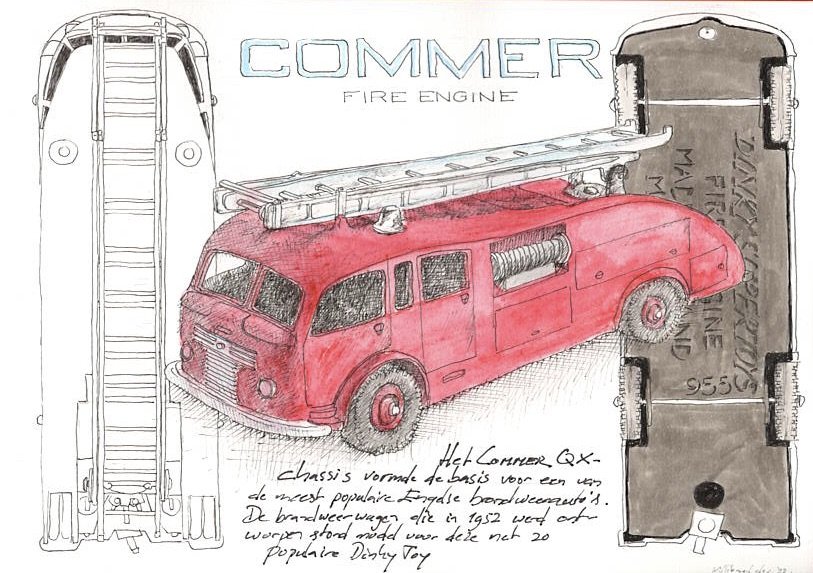 COMMER
FIRE ENGINE
DINKY SUPERTOYS
FIRE ENGINE
MAC AND
M
955
Het COMMER QX-
chassis vormde de basis voor een van
de meest populaire Engelse brandweerauto's.
De brandweerwagen die in 1952 werd ont-
worpen stond model voor deze net zo
populaire Dinky Toy